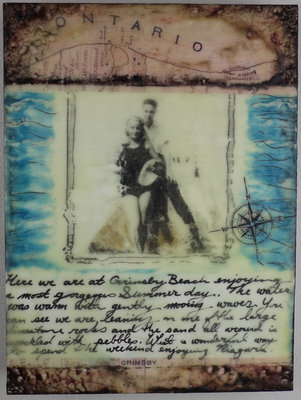 ONTARIO
Here we are at Grimsby Beach enjoying
a most gorgeous Summer day.. The water
was warm with gently moving waves. You
can see we are leaning on one of the large
rocks and the sand all around is
with pebbles. What a wonderful way
to spend the weekend enjoying Niagara
GRIMSBY.